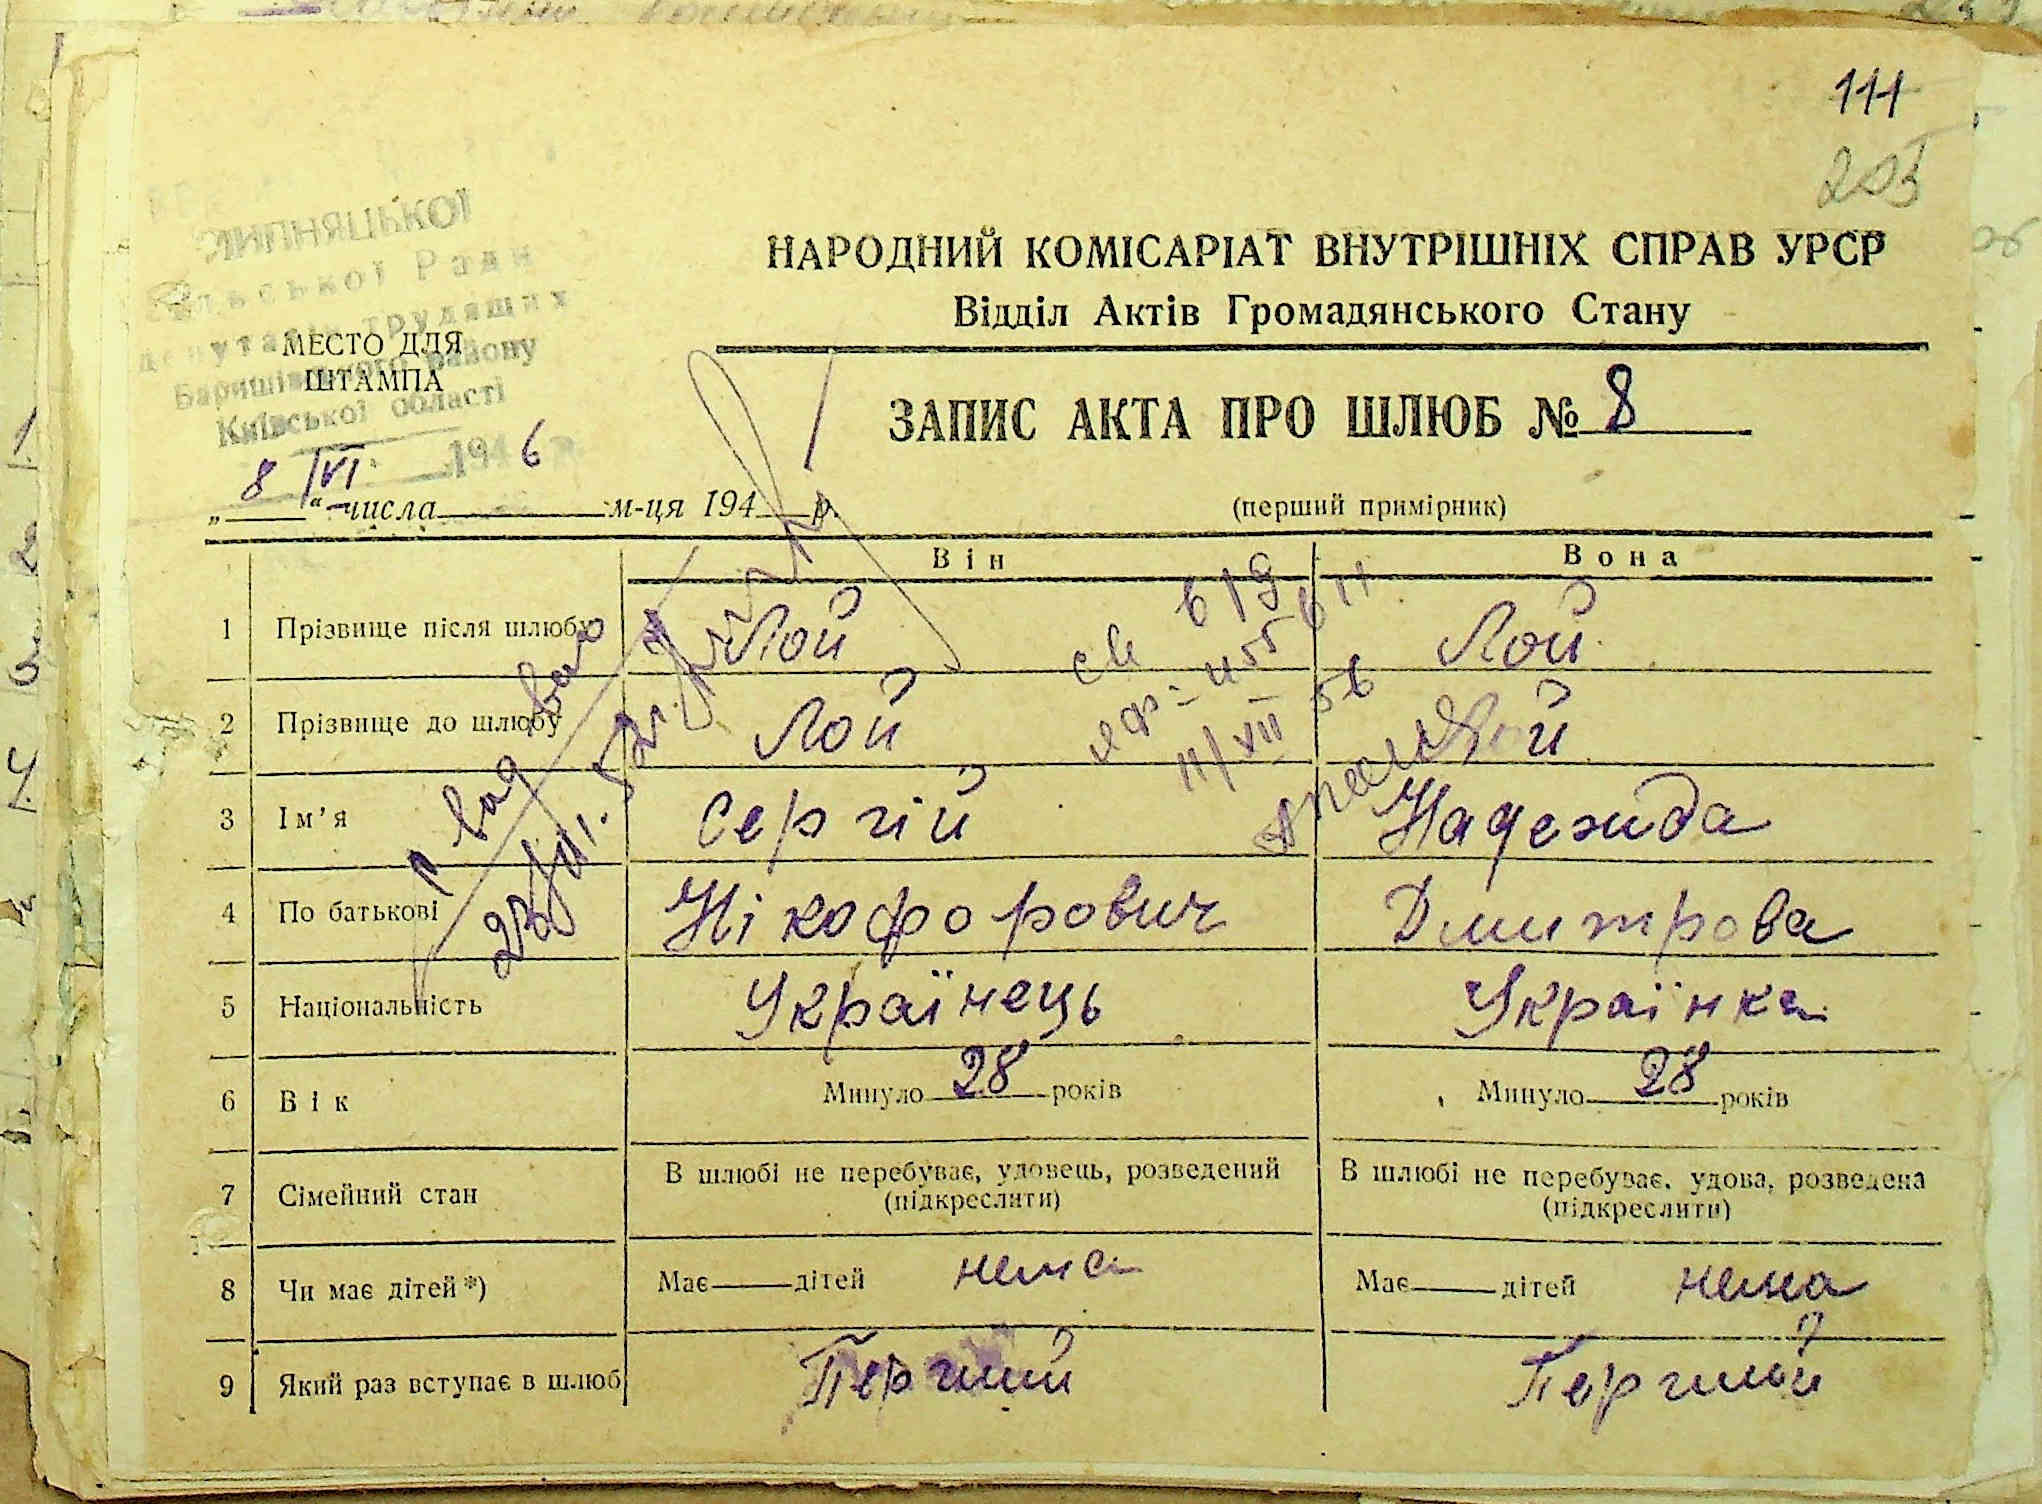 111
203
ЛИПНЯЦЬКОЇ
сільської Ради
депутатів трудящих
Баришівського району
Київської області
МЕСТО ДЛЯ
ШТАМПА
8 /VI 1946
„ “ числа м-ця 194 р.
НАРОДНИЙ КОМІСАРІАТ ВНУТРІШНІХ СПРАВ УРСР
Відділ Актів Громадянського Стану
ЗАПИС АКТА ПРО ШЛЮБ № 8
(перший примірник)
Він Вона
1 Прізвище після шлюбу Лой Лой
2 Прізвище до шлюбу Лой Лой
3 Ім’я Сергій Надежида
4 По батькові Нікофорович Дмитрова
5 Національність Українець Українка
6 Вік Минуло 28 років Минуло 28 років
7 Сімейний стан В шлюбі не перебуває, удовець, розведений (підкреслити) В шлюбі не перебуває, удова, розведена (підкреслити)
8 Чи має дітей *) Має дітей нема Має дітей нема
9 Який раз вступає в шлюб Перший Перший